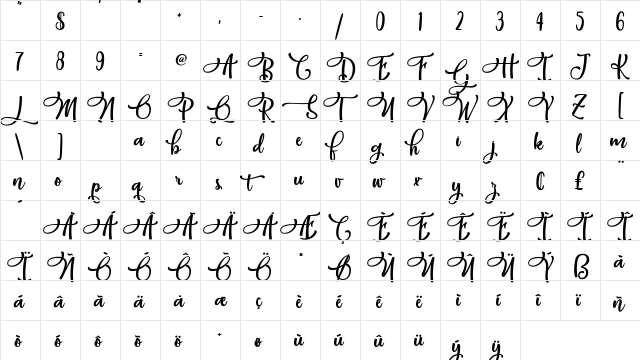 $ * , - . / 0 1 2 3 4 5 6
7 8 9 = @ A B C D E F G H I J K
L M N O P Q R S T U V W X Y Z [
\ ] a b c d e f g h i j k l m
n o p q r s t u v w x y z ₡ £
À Á Â Ã Ä Å Æ Ç È É Ê Ë Ì Í Î
Ï Ñ Ò Ó Ô Õ Ö × Ø Ù Ú Û Ü Ý ß à
á â ã ä å æ ç è é ê ë ì í î ï ñ
ò ó ô õ ö ø ù ú û ü ý ÿ